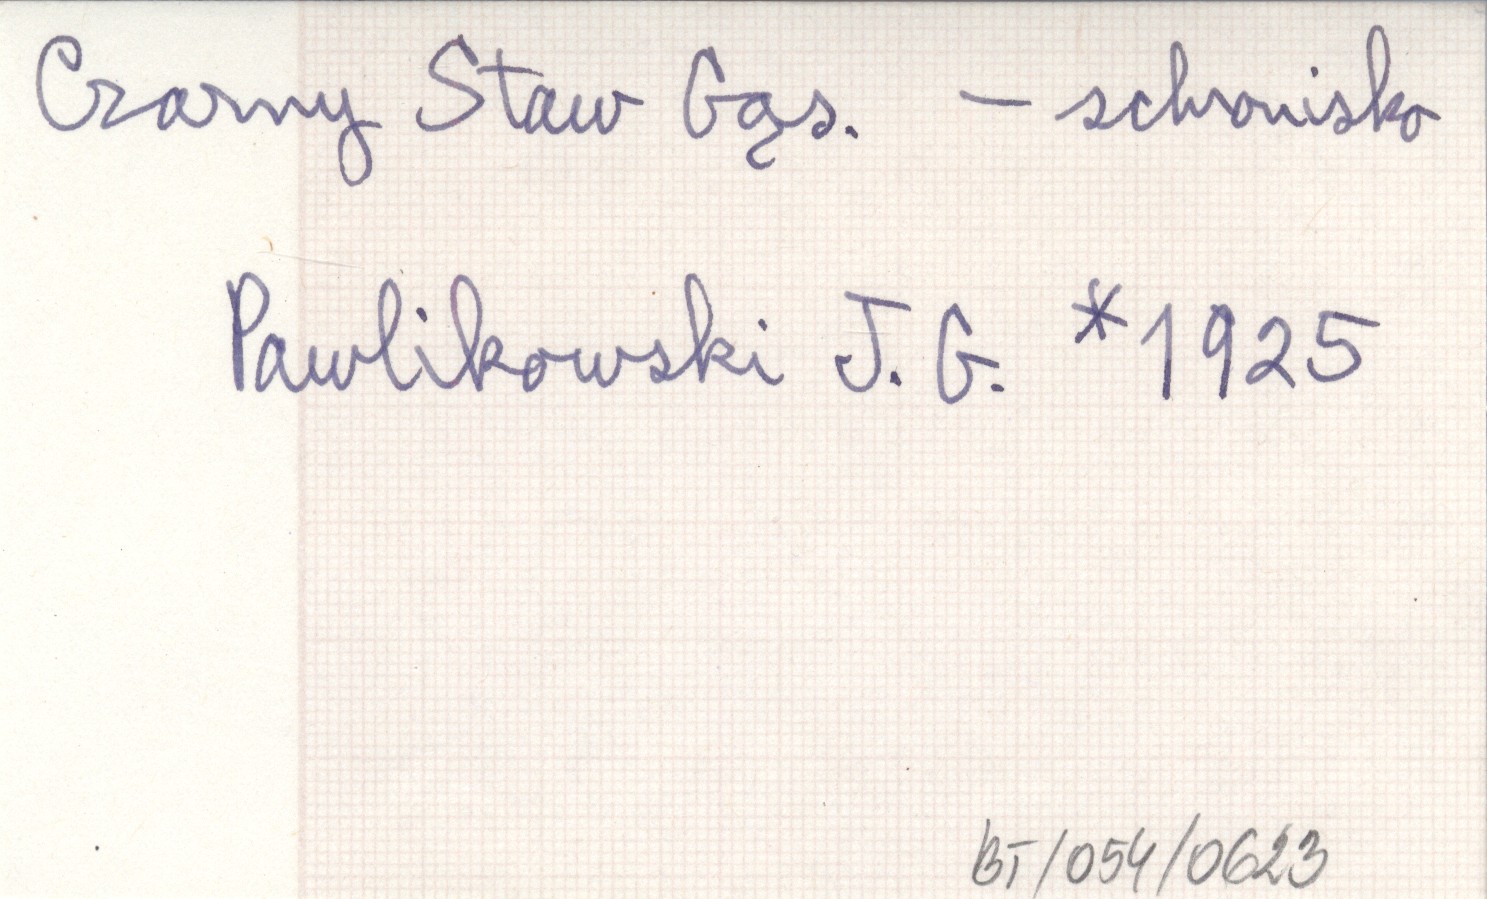 Czarny Staw Gąs. – schronisko
Pawlikowski J. G. *1925
BT/054/0623